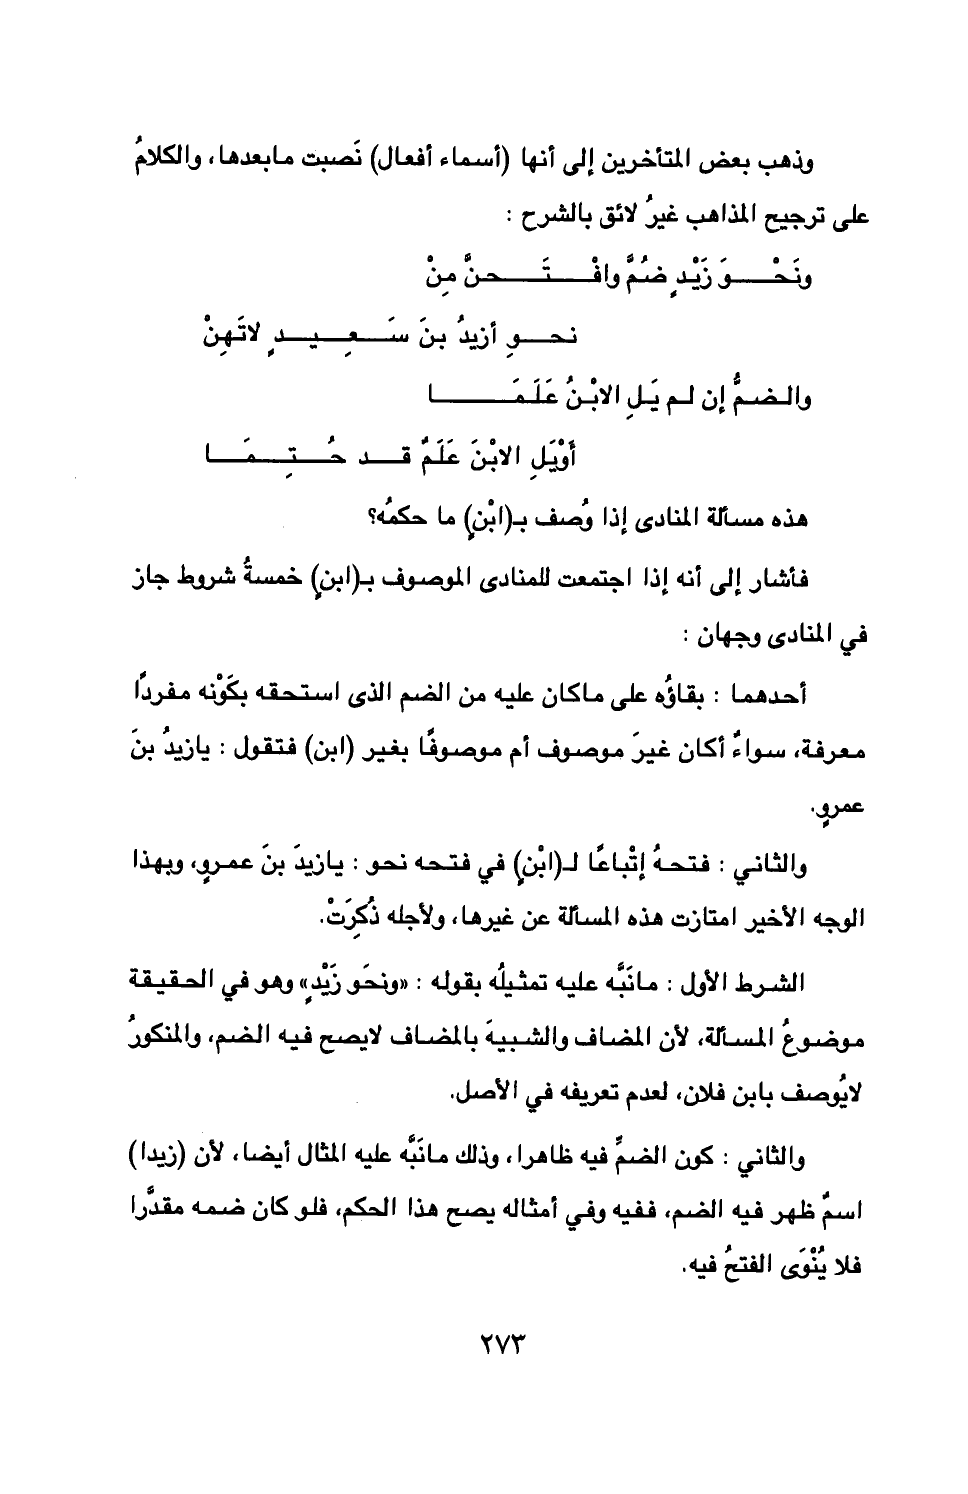 وذهب بعض المتأخرين إلى أنها (أسماء أفعال) نَصبت مابعدها، والكلامُ
على ترجيح المذاهب غيرُ لائق بالشرح :
ونَحْـــوَ زَيْدٍ ضُمَّ وافْـــتَـــحنَّ مِنْ
نحـــوِ أزيدُ بنَ سَـــعِـــيـــدٍ لاتَهِنْ
والضمُّ إن لم يَلِ الابْنُ عَلَمَـــــا
أَوْيَلِ الابْنَ عَلَمٌ قـــد حُـــتِـــمَـــا
هذه مسألة المنادى إذا وُصف بـ(ابْنٍ) ما حكمُه؟
فأشار إلى أنه إذا اجتمعت للمنادى الموصوف بـ(ابنٍ) خمسةُ شروط جاز
في المنادى وجهان :
أحدهما : بقاؤُه على ماكان عليه من الضم الذى استحقه بكَوْنه مفردًا
معرفة، سواءُ أكان غيرَ موصوف أم موصوفًا بغير (ابن) فتقول : يازيدُ بنَ
عمرٍو.
والثاني : فتحهُ إتْباعًا لـ(ابْنٍ) في فتحه نحو : يازيدَ بنَ عمرٍو، وبهذا
الوجه الأخير امتازت هذه المسألة عن غيرها، ولأجله ذُكِرَتْ.
الشرط الأول : مانَبَّه عليه تمثيلُه بقوله : «ونحَو زَيْدٍ» وهو في الحقيقة
موضوعُ المسألة، لأن المضاف والشبيهَ بالمضاف لايصح فيه الضم، والمنكورُ
لايُوصف بابن فلان، لعدم تعريفه في الأصل.
والثاني : كون الضمِّ فيه ظاهرا، وذلك مانَبَّه عليه المثال أيضا، لأن (زيدا)
اسمٌ ظهر فيه الضم، ففيه وفي أمثاله يصح هذا الحكم، فلو كان ضمه مقدَّرا
فلا يُنْوَى الفتحُ فيه.
٢٧٣